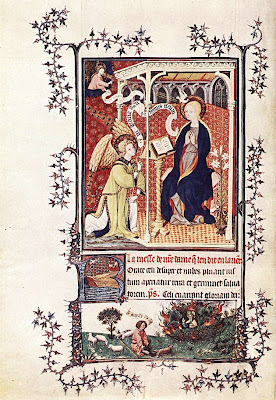 La messe de nr̃e dame q̃ len dit en lauẽt
Rorate celi desuper et nubes pluant ius
tum aperiatur terra et germinet salua
torem. ps. Celi enarrant gloriam dei